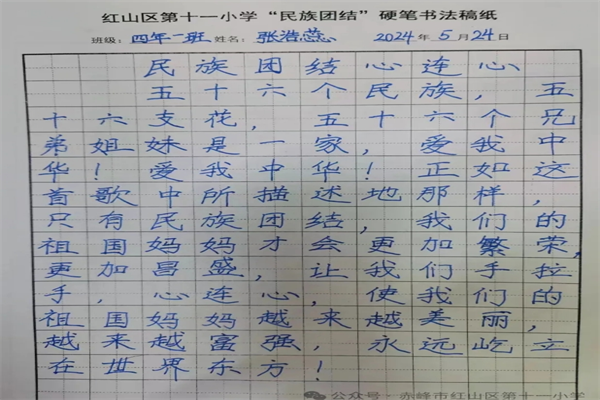 红山区第十一小学“民族团结”硬笔书法稿纸
班级:四年一班 姓名:张浩蕊 2024年5月24日
民族团结心连心
五十六个民族,五
十六支花,五十六个兄
弟姐妹是一家,爱我中
华!爱我中华!正如这
首歌中所描述地那样,
只有民族团结,我们的
祖国妈妈才会更加繁荣,
更加昌盛,让我们手拉
手,心连心,使我们的
祖国妈妈越来越美丽,
越来越富强,永远屹立
在世界东方!
公众号·赤峰市红山区第十一小学